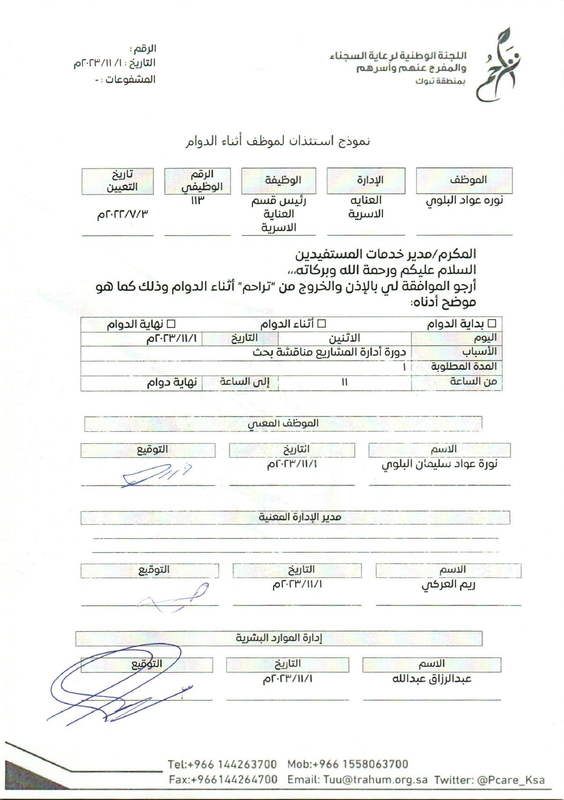 اللجنة الوطنية لرعاية السجناء
والمفرج عنهم وأسرهم
بمنطقة تبوك
تراحم
الرقم :
التاريخ : ٢٠٢٣/١١/١م
المشفوعات : -
نموذج استئذان لموظف أثناء الدوام
الموظف الإدارة الوظيفة الرقم الوظيفي تاريخ التعيين
نوره عواد البلوي العنايه الاسرية رئيس قسم العناية الاسرية ١١٣ ٢٠٢٢/٧/٣م
المكرم/مدير خدمات المستفيدين
السلام عليكم ورحمة الله وبركاته،،،
أرجو الموافقة لي بالإذن والخروج من "تراحم" أثناء الدوام وذلك كما هو
موضح أدناه:
☐ بداية الدوام ☐ أثناء الدوام ☐ نهاية الدوام
اليوم الاثنين التاريخ ٢٠٢٣/١١/١م
الأسباب دورة أدارة المشاريع مناقشة بحث
المدة المطلوبة ١
من الساعة ١١ إلى الساعة نهاية دوام
الموظف المعني
الاسم التاريخ التوقيع
نورة عواد سليمان البلوي ٢٠٢٣/١١/١م
مدير الإدارة المعنية
الاسم التاريخ التوقيع
ريم العركي ٢٠٢٣/١١/١م
إدارة الموارد البشرية
الاسم التاريخ التوقيع
عبدالرزاق عبدالله ٢٠٢٣/١١/١م
Tel:+966 144263700 Mob:+966 1558063700
Fax:+966144264700 Email: Tuu@trahum.org.sa Twitter: @Pcare_Ksa